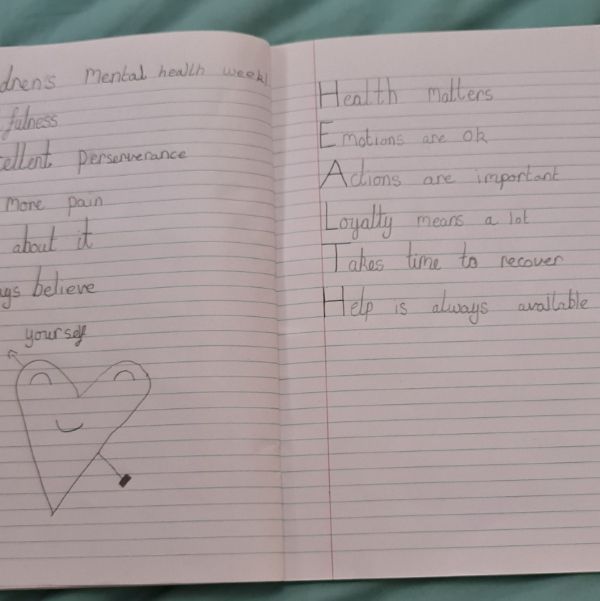 dren's Mental health week!
fulness
cellent perserverance
more pain
about it
ays believe
yourself
Health matters
Emotions are ok
Actions are important
Loyalty means a lot
Takes time to recover
Help is always available